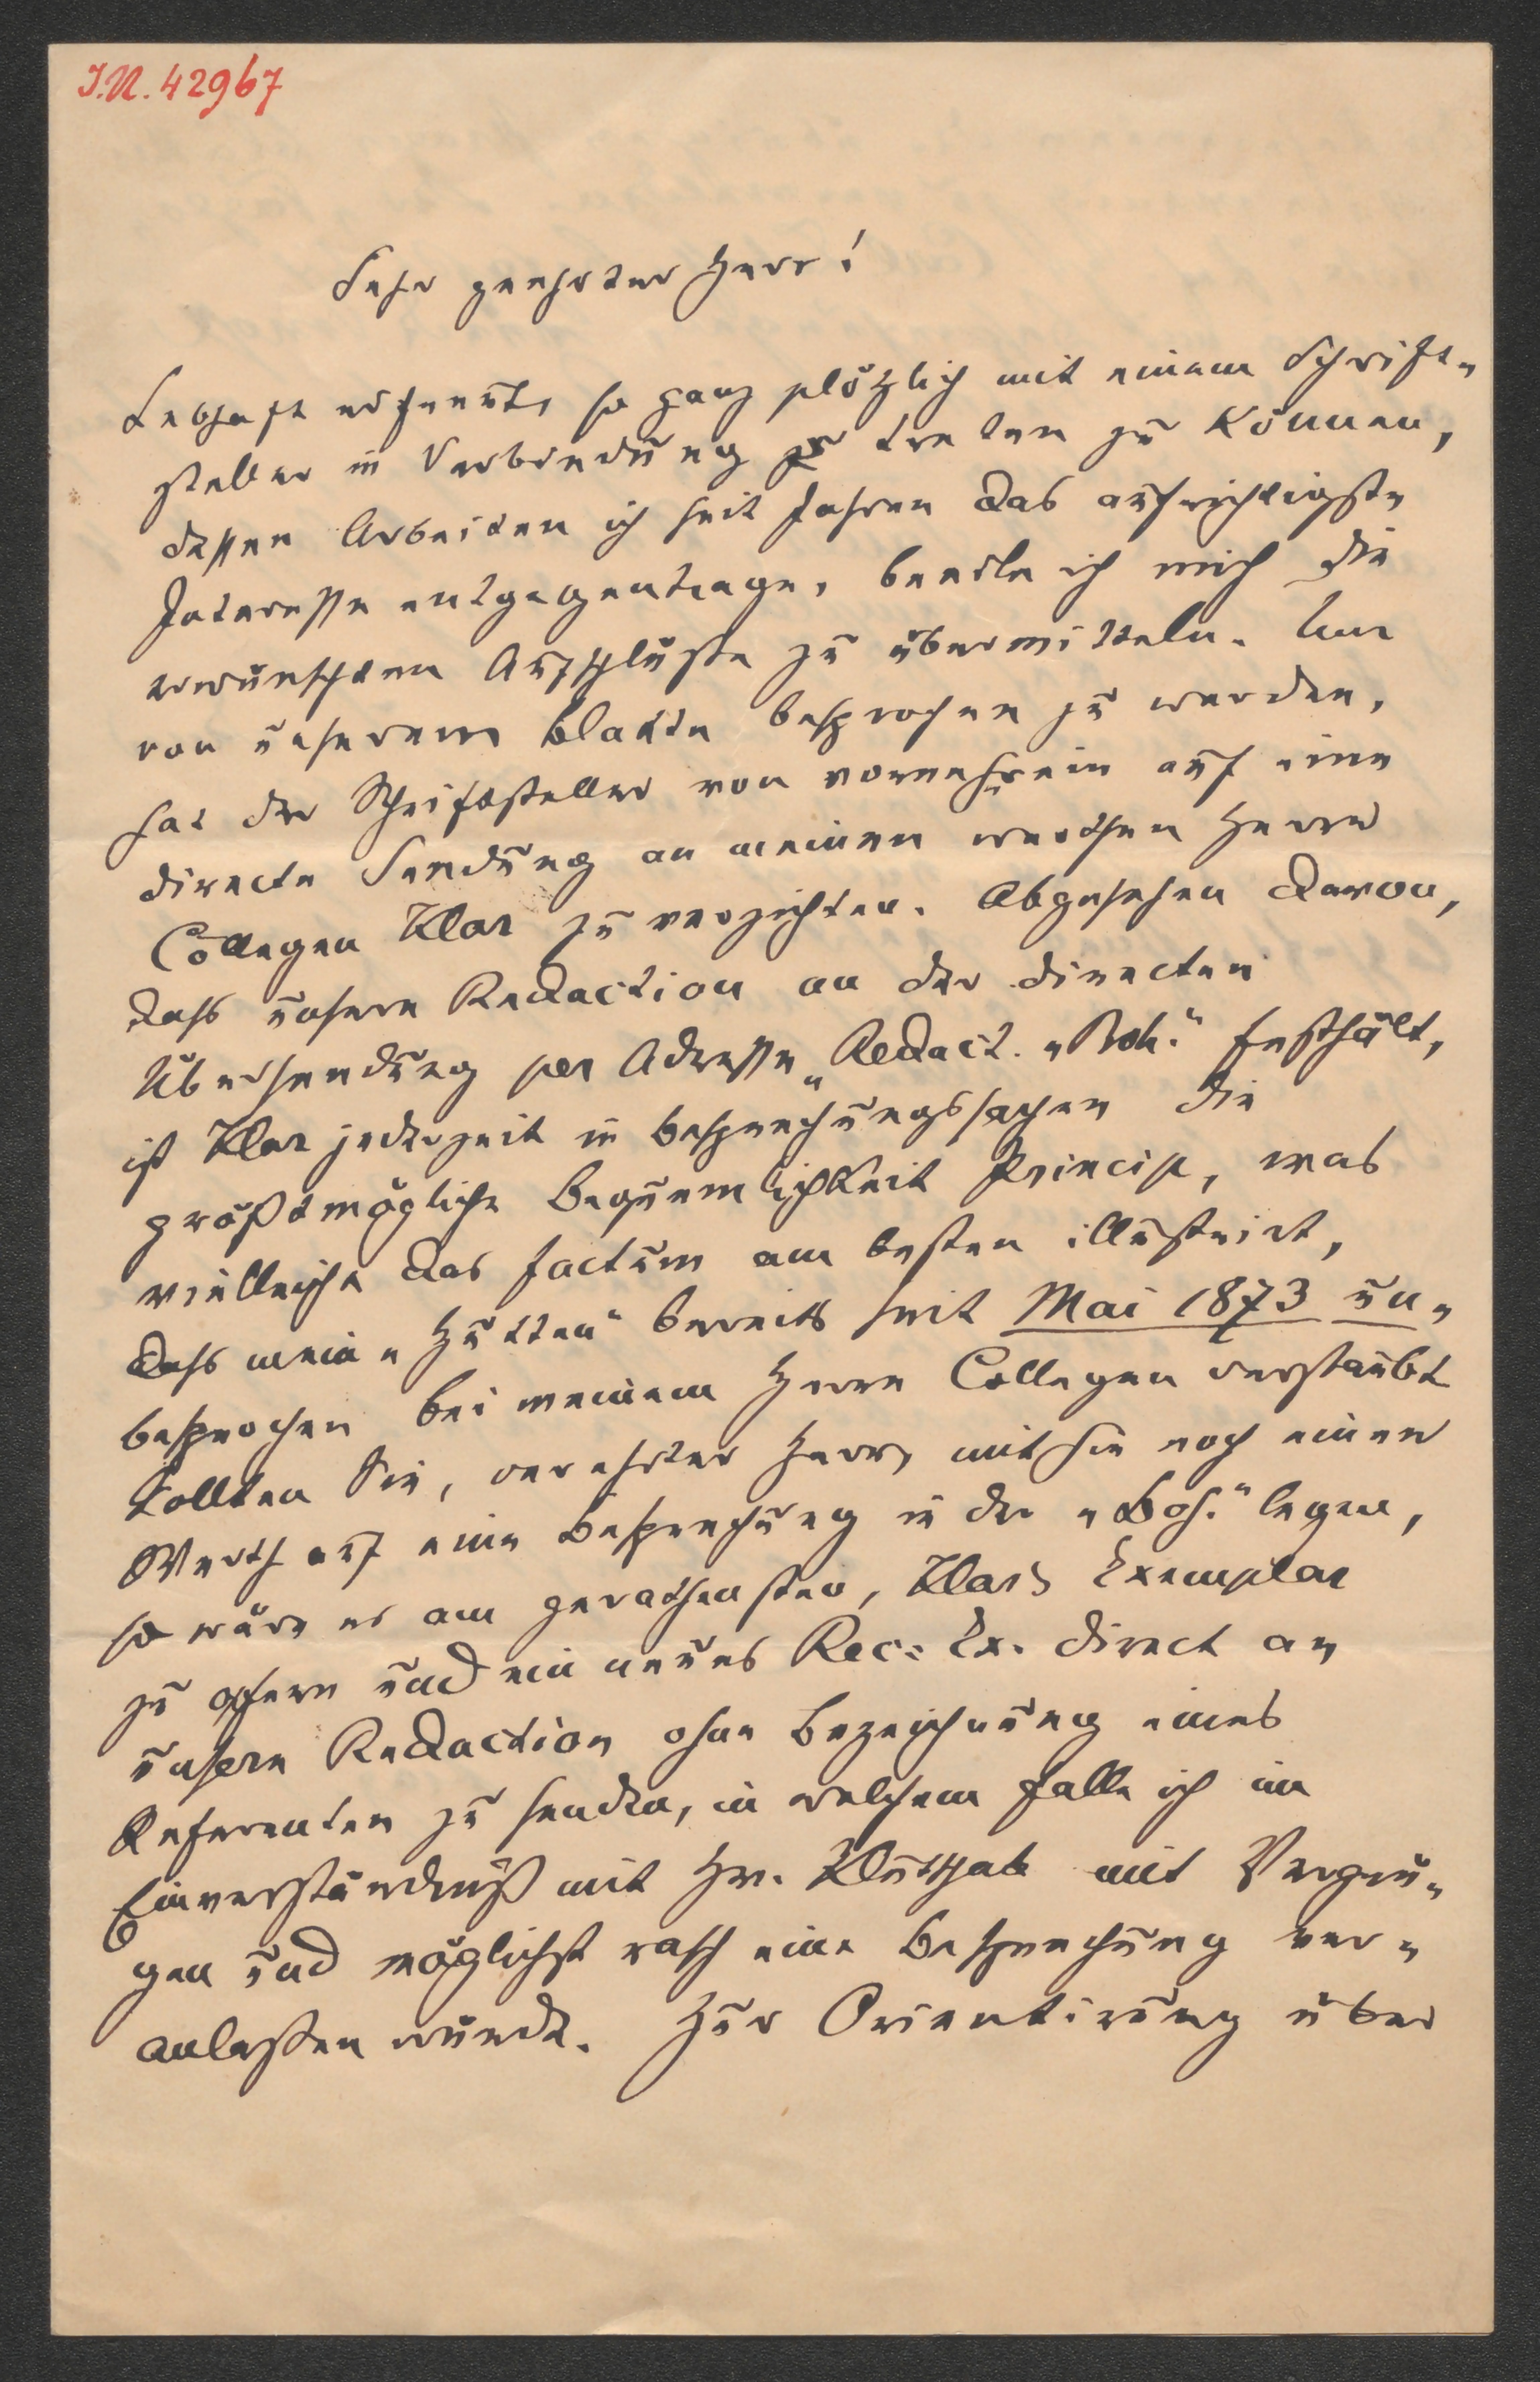 J.N. 42967
Sehr geehrter Herr!
Lebhaft erfreut, so ganz plötzlich mit einem Schrift-
steller in Verbindung treten zu können,
dessen Arbeiten ich seit Jahren das aufrichtigste
Interesse entgegentrage, beeile ich mich die
erwünschten Aufschlüße zu übermitteln. Um
von unserem Blatte besprochen zu werden,
hat der Schriftsteller von vornehrein auf eine
directe Sendung an meinen werthen Herrn
Collegen Klar zu verzichten. Abgesehen davon,
dass unsere Redaction an der directen
Übersendung per Adresse „Redact. „Boh.“ festhält,
ist Klar jederzeit in Besprechungssachen die
größtmögliche Bequemlichkeit Princip, was
vielleicht das Factum am besten illustrirt,
dass mein „Hutten“ bereits seit Mai 1873 un-
besprochen bei meinem Herrn Collegen verstaubt
Sollten Sie, verehrter Herr, mithin noch einen
Werth auf eine Besprechung in der „Boh.“ legen,
so wäre es am gerathensten, Klars Exemplar
zu opfern und ein neues Rec: Ex. direct an
unsere Redaction ohne Bezeichnung eines
Referenten zu senden, in welchem Falle ich im
Einverständniß mit Hr. Klutschak mit Vergnü-
gen und möglichst rasch eine Besprechung ver-
anlaßen würde. Zur Orientirung über